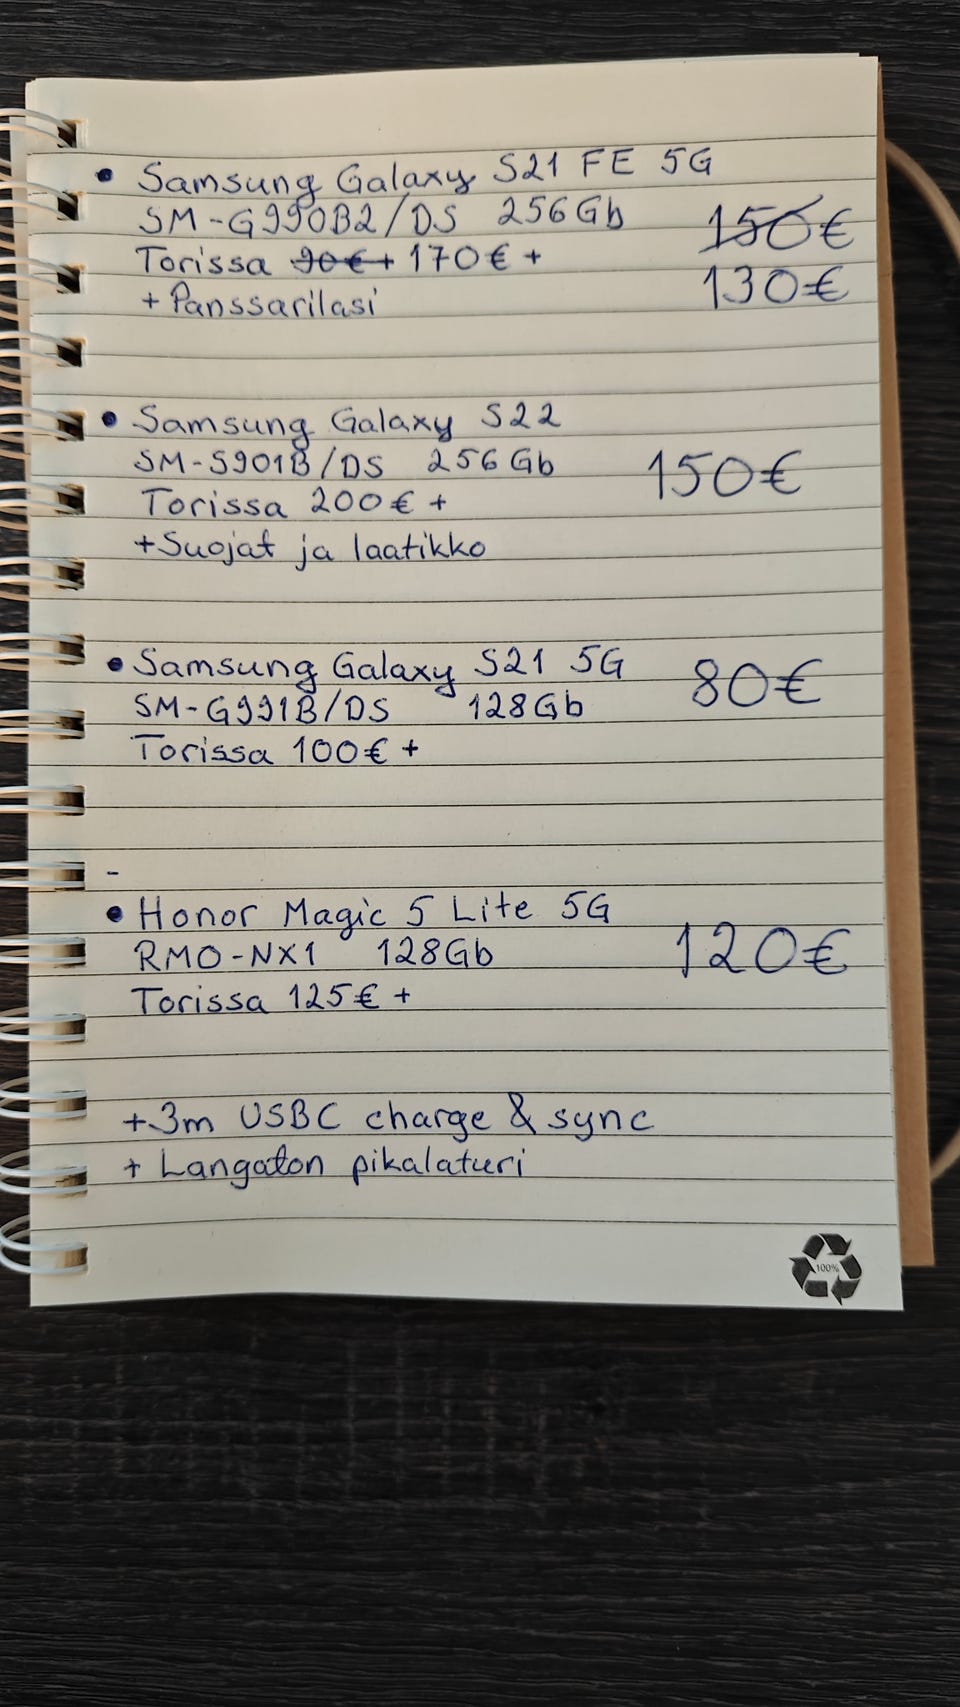 • Samsung Galaxy S21 FE 5G
SM-G990B2/DS 256Gb 150€
Torissa 90€+ 170€ +
130€
+ Panssarilasi
• Samsung Galaxy S22
SM-S901B/DS 256Gb 150€
Torissa 200€ +
+Suojat ja laatikko
• Samsung Galaxy S21 5G 80€
SM-G991B/DS 128Gb
Torissa 100€ +
-
• Honor Magic 5 Lite 5G
RMO-NX1 128Gb 120€
Torissa 125€ +
+3m USBC charge & sync
+ Langaton pikalaturi
100%